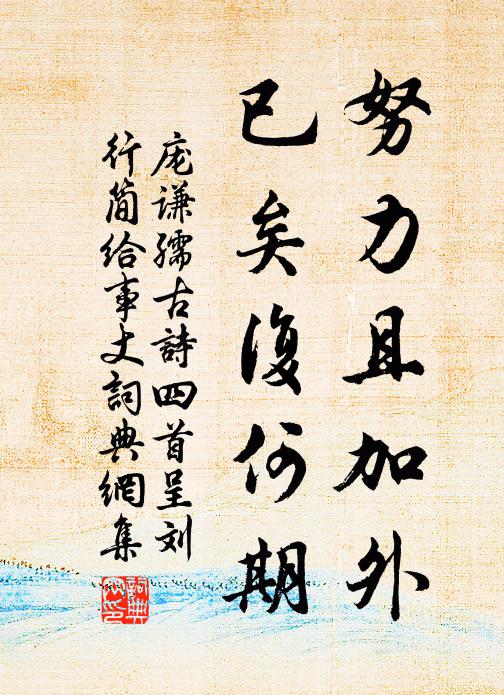 努力且加外
已矣復何期
庞谦孺古詩四首呈刘
行简给事丈詞典網集